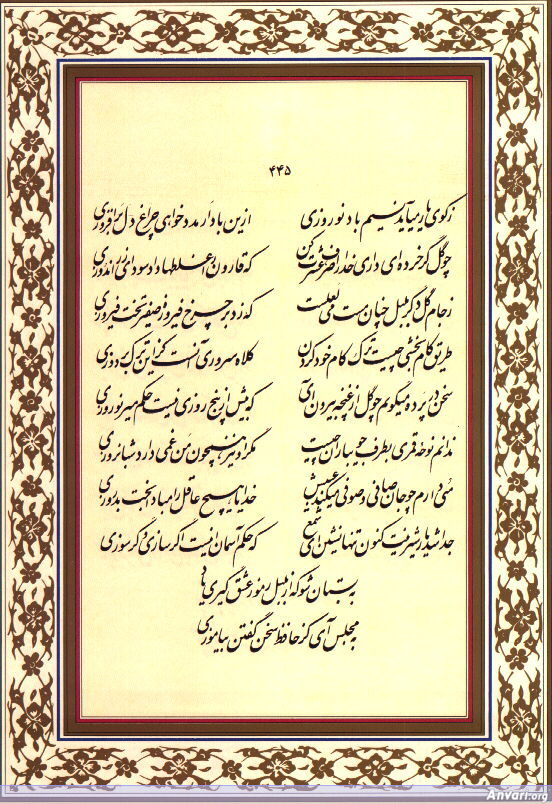 ۴۴۵
زکوی یار میآید نسیم باد نوروزی ازین باد ار مدد خواهی چراغ دل برافروزی
چو گل گر خرده ای داری خدا را صرف عشرت کن که قارون را غلطها داد سودای زراندوزی
ز جام گل دگر بلبل چنان مست می لعلست که زد بر چرخ فیروزه صفیر تخت فیروزی
طریق کام بخشی چیست ترک کام خود کردن کلاه سروری آنست کز این ترک بردوزی
سخن در پرده میگویم چو گل از غنچه بیرون آی که بیش از پنج روزی نیست حکم میر نوروزی
ندانم نوحه قمری بطرف جویباران چیست مگر او نیز همچون من غمی دارد شبانروزی
می دارم چو جان صافی و صوفی میکند عیبش خدایا هیچ عاقل را مبادا بخت بد روزی
جدا شد یار شیرینت کنون تنها نشین ای شمع که حکم آسمان اینست اگر سازی و گر سوزی
به بستان شو که از بلبل رموز عشق گیری یاد
به مجلس آی کز حافظ سخن گفتن بیاموزی
Anvari.org